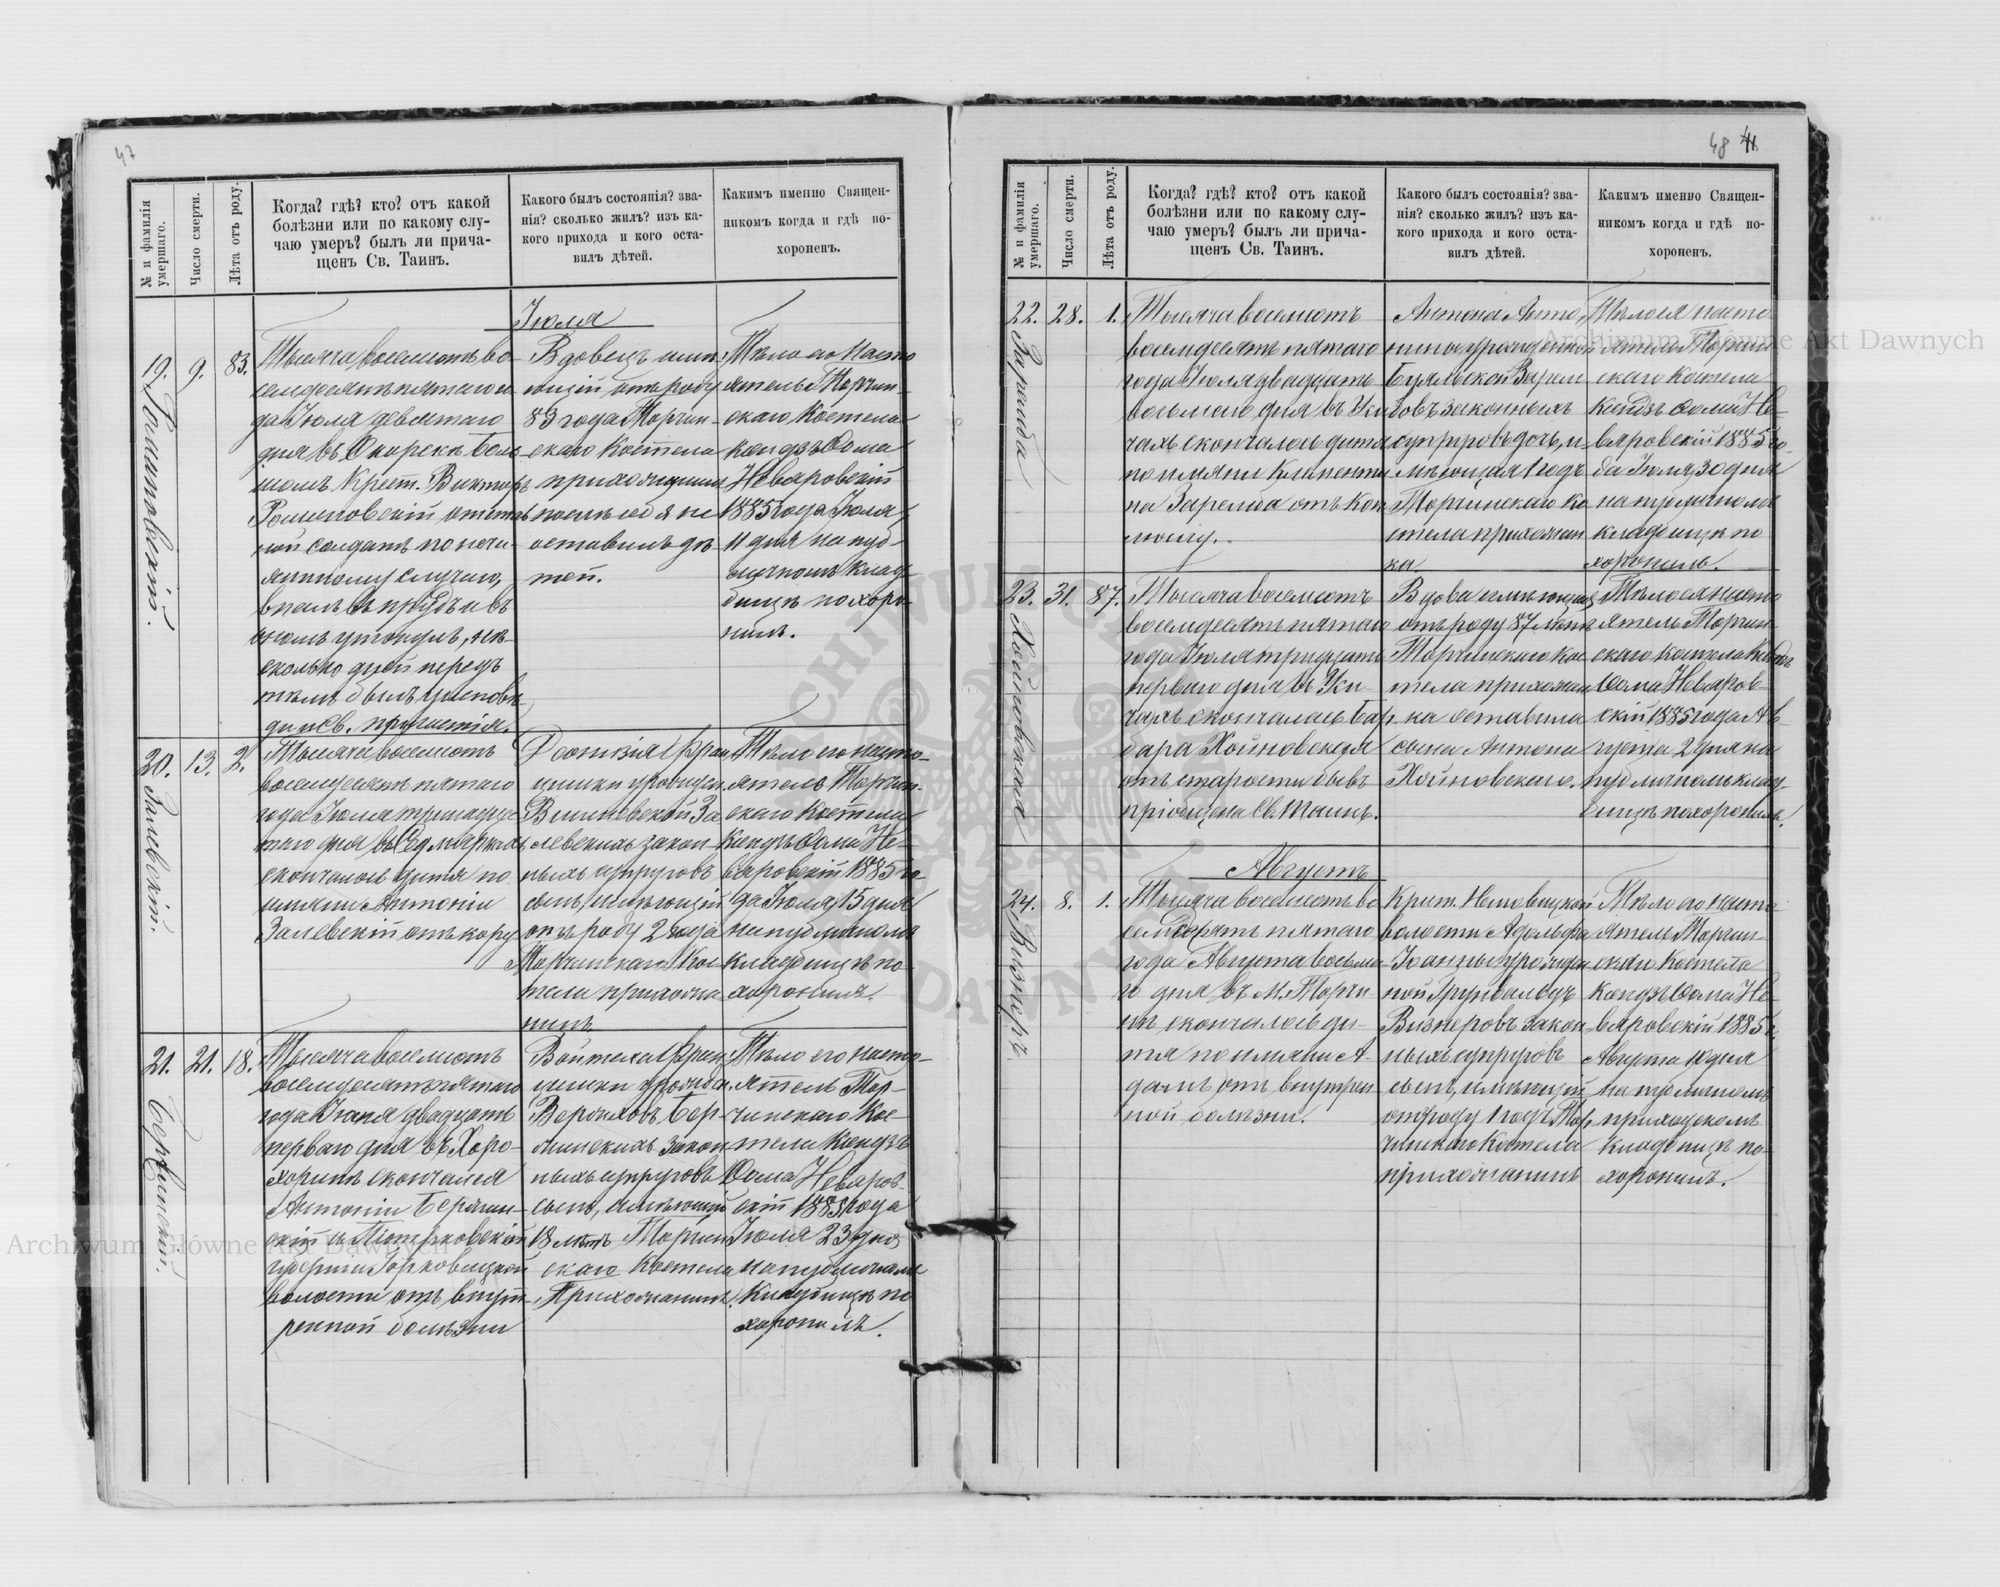 47
№ и фамилія умершаго.
Число смерти.
Лѣта отъ роду.
Когда? гдѣ? кто? отъ какой
болѣзни или по какому слу-
чаю умеръ? былъ ли прича-
щенъ Св. Таинъ.
Какого былъ состоянія? зва-
нія? сколько жилъ? изъ ка-
кого прихода и кого оста-
вилъ дѣтей.
Каким именно Священ-
никомъ когда и гдѣ по-
хороненъ.
Іюля
19.
9.
83.
Тысяча восемьсотъ во-
семдесятъ пятаго го
да Іюля девятаго
дня въ Скорекъ Боль
шомъ Крест. Виктор
отстав
ной солдатъ по нечи-
янному случаю,
ономъ утонулъ, нѣ
сколько дней передъ
тѣмъ былъ у исповѣ
ди и Св. причастія.
Вдовецъ имѣ
ющій отъ роду
83 года Торчин-
скаго Костела
прихожанинъ
послѣ себя не
оставилъ дѣ-
тей.
Тѣло его Насто
ятель Торчин-
скаго Костела
ксендзъ Ѳома
Неваровскій
1885 года Іюля
11 дня на пуб-
личномъ клад
бищѣ похоро-
нилъ.
20. Залевскій.
13.
2.
Тысяча восемьсотъ
восемдесятъ пятаго
года Іюля тринадца
таго дня въ
скончалось дитя по
имени Антоній
Залевскій отъ кору
Діонизія Фран
цишки урожден.
Вишневской За
левскихъ закон-
ныхъ супруговъ
сынъ, имѣющій
отъ роду 2 года
Торчинскаго Кос-
тела прихожа
нинъ
Тѣло его насто-
ятель Торчин-
скаго Костела
Ксендзъ Ѳома Не-
варовскій 1885 го-
да Іюля 15 дня
на публичномъ
кладбищѣ по-
хоронилъ.
21.
21.
18.
Тысяча восемьсотъ
восемдесятъ пятаго
года Іюля двадцать
перваго дня въ Хоро-
хоринѣ скончался
Антоній
скій съ Піотрковской
губерніи
волости отъ внут-
ренной болѣзни
Войтеха Фран
цишки урожден.
скихъ закон
ныхъ супруговъ
сынъ, имѣющій
18 лѣтъ Торчин
скаго Костела
Прихожанинъ.
Тѣло его насто-
ятель Тор-
чинскаго Кос-
тела Ксендзъ
Ѳома Неваров-
скій 1885 года
Іюля 23 дня
на публичномъ
Кладбищѣ по
хоронилъ.
48
№ и фамилія умершаго.
Число смерти.
Лѣта отъ роду.
Когда? гдѣ? кто? отъ какой
болѣзни или по какому слу-
чаю умеръ? былъ ли прича-
щенъ Св. Таинъ.
Какого былъ состоянія? зва-
нія? сколько жилъ? изъ ка-
кого прихода и кого оста-
вилъ дѣтей.
Какимъ именно Священ-
никомъ когда и гдѣ по-
хороненъ.
22. Заремба
28.
1.
Тысяча восемьсотъ
восемдесятъ пятаго
года Іюля двадцать
восьмаго дня въ Уки
чахъ скончалось дитя
по имени Клименти
на Заремба отъ кок
люшу.
Антона Анто
нины урожденной
Буяльской Зарем
бовъ законныхъ
супруговъ дочь, и
мѣющая 1 годъ
Торчинскаго ко
стела прихожан
ка.
Тѣло ея насто
ятель Торчин
скаго Костела
Ксендзъ Ѳома Не-
варовскій 1885 го-
да Іюля 30 дня
на публичномъ
кладбищѣ по
хоронилъ.
23. Хойновская
31.
87.
Тысяча восемьсотъ
восемдесятъ пятаго
года Іюля тридцать
перваго дня въ Уки-
чахъ скончалась Бар
бара Хойновская
отъ старости бывъ
пріобщена Св. Таинъ.
Вдова имѣющая
отъ роду 87 лѣтъ
Торчинскаго Кос
тела прихожан
ка оставила
сына Антона
Хойновскаго.
Тѣло ея насто
ятель Торчин-
скаго костела Ксендзъ
Ѳома Неваров-
скій 1885 года Ав-
густа 2 дня на
публичномъ клад-
бищѣ похоронилъ.
Августъ
24. Визнеръ
8.
1.
Тысяча восемьсотъ во
семдесятъ пятаго
года Августа восьма-
го дня въ М. Торчи
нѣ скончалось ди-
тя по имени А-
дамъ отъ внутрен
ной болѣзни.
Крест.
волости Адольфа
Іоанны урожден
ной Грунвальдъ
Визнеровъ закон
ныхъ супруговъ
сынъ, имѣющій
отъ роду 1 годъ Тор
чинскаго Костела
прихожанинъ
Тѣло его насто
ятель Торчин-
скаго Костела
Ксендзъ Ѳома Не-
варовскій 1885 г.
Августа 10 дня
на публичномъ
приходскомъ
Кладбищѣ по-
хоронилъ.
Archiwum Główne Akt Dawnych
Archiwum Główne Akt Dawnych